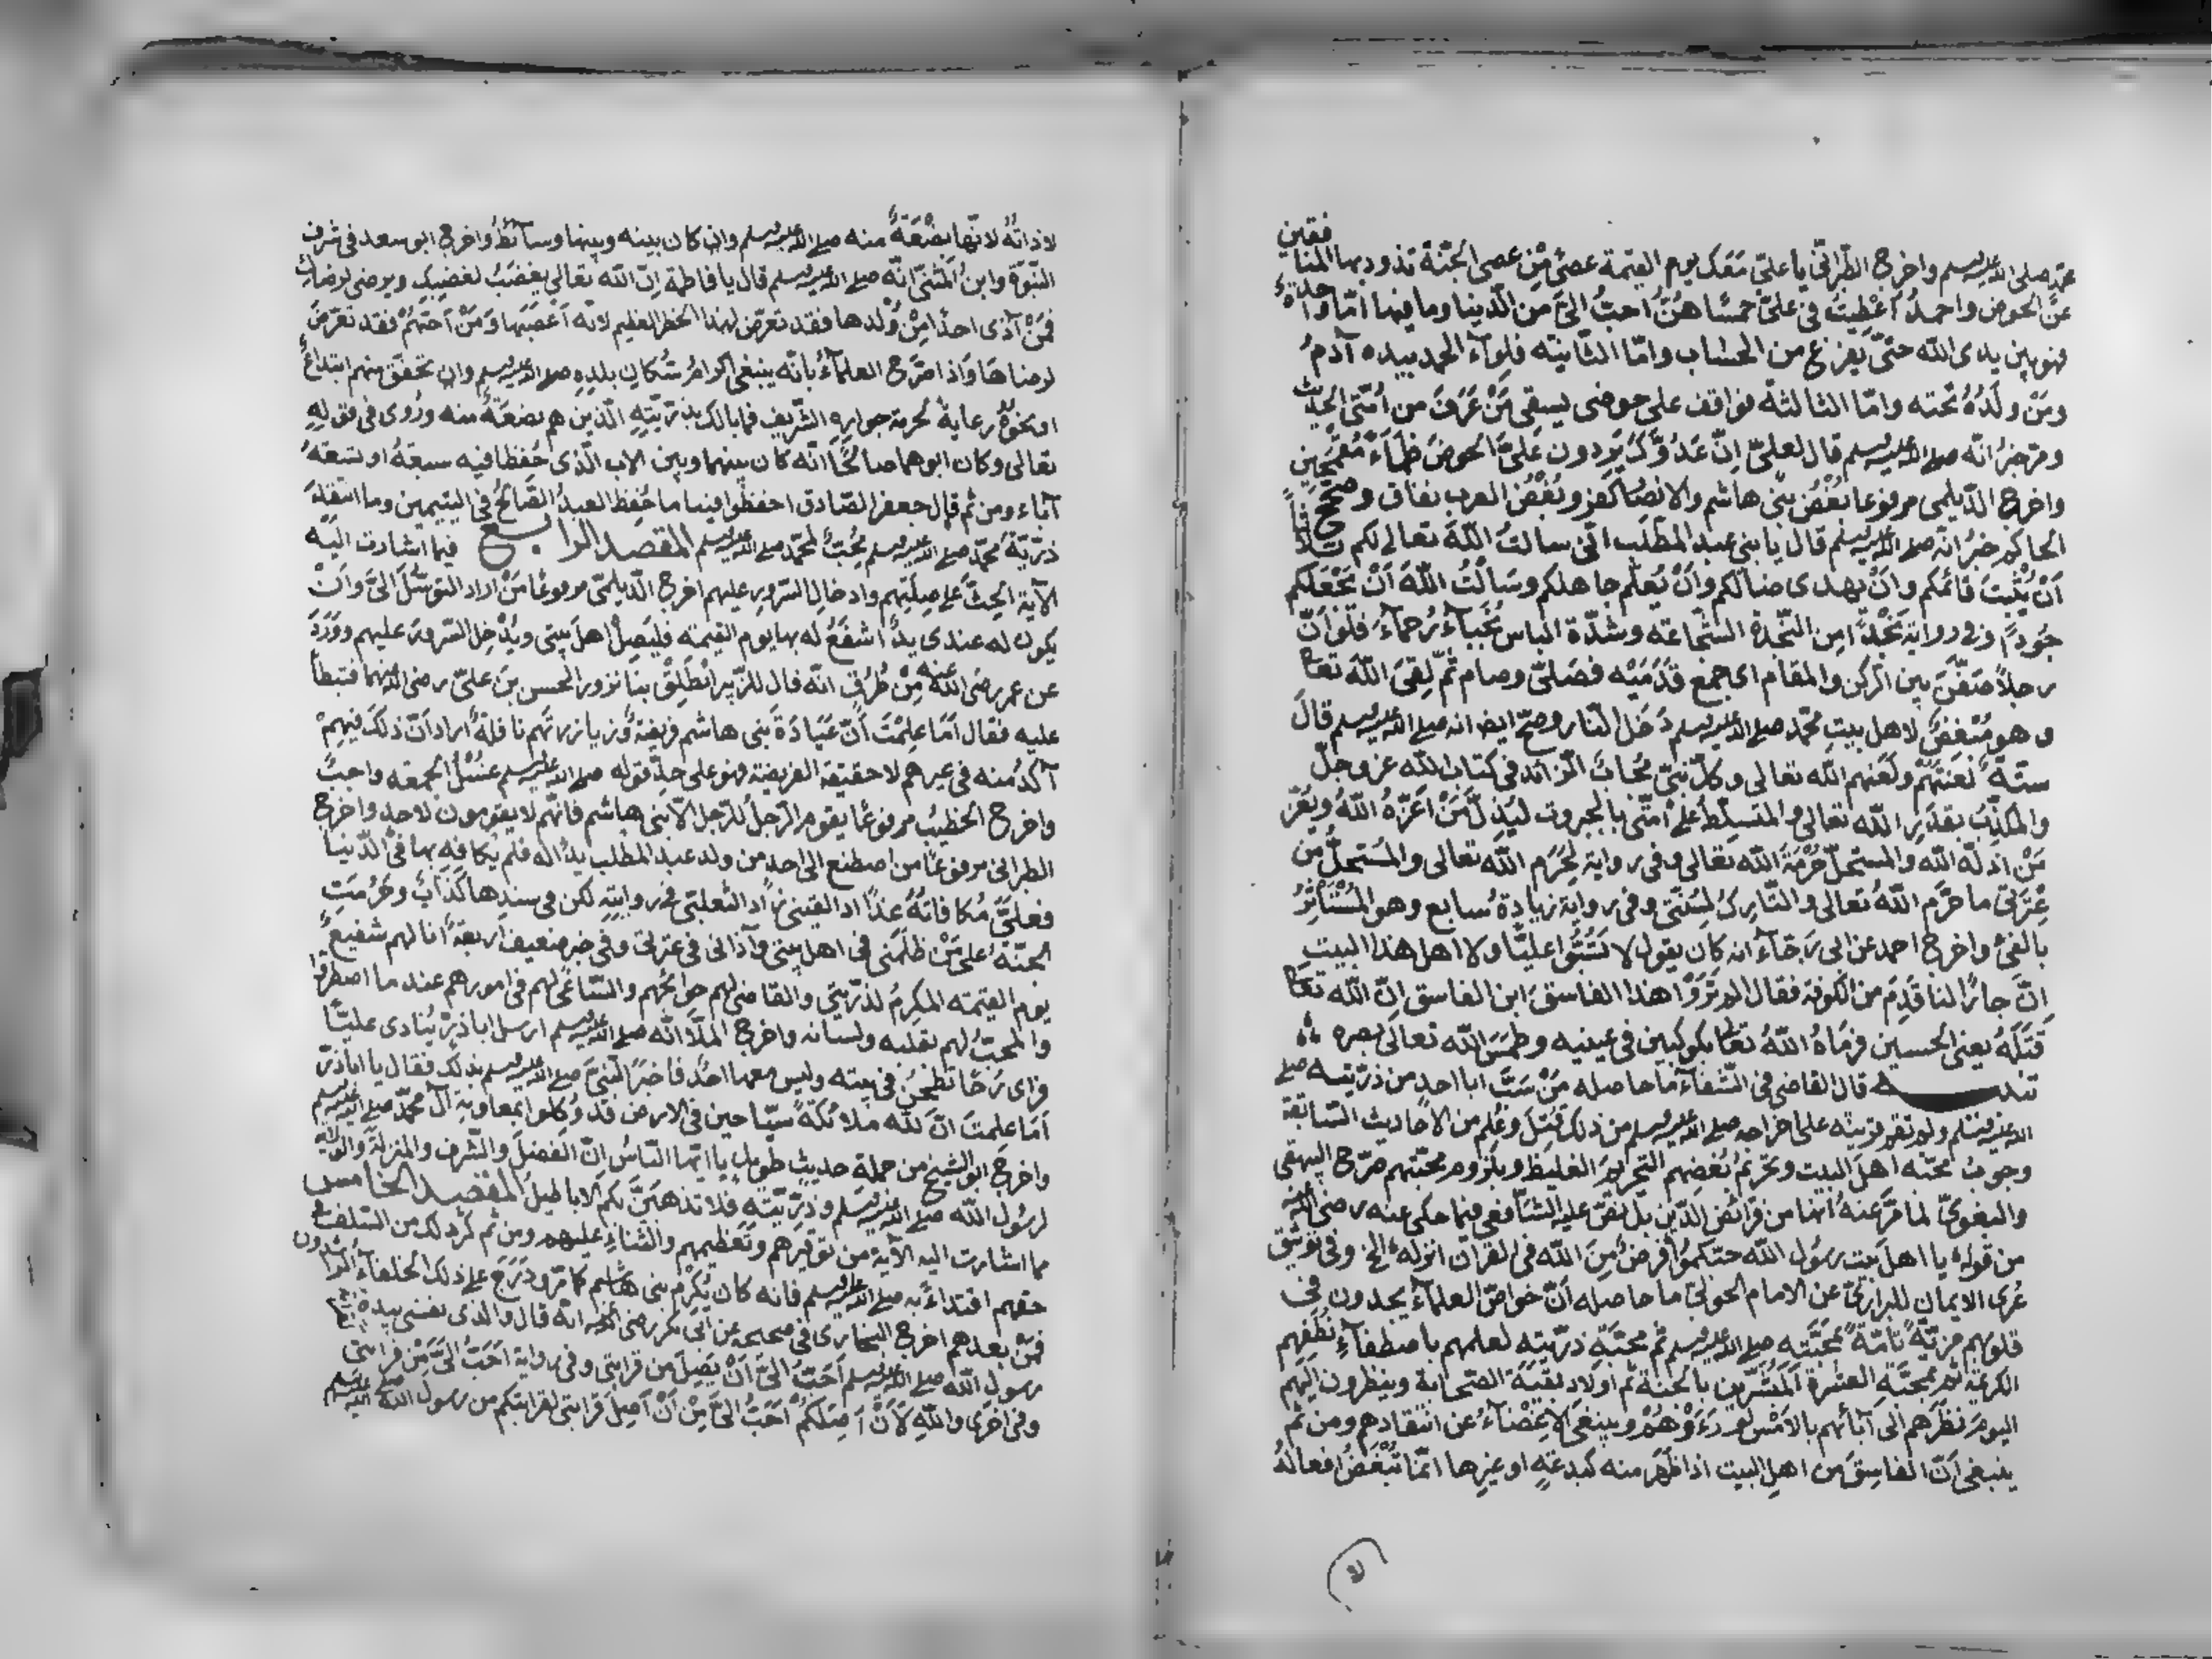 محمد صلى الله عليه وسلم واخرج الطبراني يا علي معك يوم القيمة عصى من عصى الجنة تذود بها المنافقين
عن الحوض واحمد اعطيت في علي خمسا هن احب الي من الدنيا وما فيها اما واحدة
فهو بين يدي الله حتى يفرغ من الحساب واما الثانية فلواء الحمد بيده آدم
ومن ولده تحته واما الثالثة فواقف على حوضى يسقى من عرف من امتى الحديث
ومر خبر انه صلى الله عليه وسلم قال لعلي ان عدوك يردون علي الحوض ظماء مقمحين
واخرج الديلمي مرفوعا بغض بنى هاشم والانصار كفر وبغض العرب نفاق وصحح
الحاكم خبر انه صلى الله عليه وسلم قال يا بني عبد المطلب اني سالت الله تعالى لكم ثلاثا
ان يثبت قائمكم وان يهدى ضالكم وان يعلم جاهلكم وسالت الله ان يجعلكم
جودا وفي رواية نجدا من النجدة الشجاعة وشدة الباس نجباء رحماء فلو ان
رجلا صفن بين الركن والمقام اى جمع قدميه فصلى وصام ثم لقى الله تعا
وهو مبغض لاهل بيت محمد صلى الله عليه وسلم دخل النار وصح ايضا انه صلى الله عليه وسلم قال
ستة لعنتهم ولعنهم الله تعالى وكل نبي مجاب الزائد في كتاب الله عز وجل
والمكذب بقدر الله تعالى والمتسلط على امتى بالجبروت ليذل من اعزه الله ويعز
من اذله الله والمستحل حرمة الله تعالى وفي رواية لحرم الله تعالى والمستحل من
عترتي ما حرم الله تعالى والتارك لسنتى وفي رواية زيادة سابع وهو المستاثر
بالفئ واخرج احمد عن ابي رجاء انه كان يقول لا تسبوا عليا ولا اهل هذا البيت
ان جارا لنا قدم من الكوفة فقال الم تروا هذا الفاسق ابن الفاسق ان الله تعا
قتله يعني الحسين فرماه الله تعا بكوكبين في عينيه وطمس الله تعالى بصره
تنبيه قال القاضي في الشفاء ما حاصله من سب ابا احد من ذريته صلى
الله عليه وسلم ولم تقم قرينة على اخراجه صلى الله عليه وسلم من ذلك قتل وعلم من الاحاديث السابقة
وجوب محبة اهل البيت وتحريم بغضهم التحريم الغليظ وبلزوم محبتهم صرح البيهقي
والبغوي لما مر عنه انها من فرائض الدين بل نص عليه الشافعي فيما حكى عنه رضى الله عنه
من قوله يا اهل بيت رسول الله حبكموا فرض من الله في القران انزله الخ وفي توثيق
عرى الايمان للبارزي عن الامام الحولي ما حاصله ان خواص العلماء يجدون في
قلوبهم مزية تامة بمحبته صلى الله عليه وسلم ثم محبة ذريته لعلمهم باصطفاء نطفهم
الكريمة ثم بمحبة العشرة المبشرين بالجنة ثم اولاد بقية الصحابة وينظرون اليهم
اليوم نظرهم الى آبائهم بالامس لو رءوهم وينبغي الاغضاء عن انتقادهم ومن ثم
ينبغي ان الفاسق من اهل البيت اذا ظهر منه كبدعة او غيرها انما تبغض افعاله
لا
لا ذاته لانها بضعة منه صلى الله عليه وسلم وان كان بينه وبينها وسائط واخرج ابو سعد في شرف
النبوة وابن المثنى انه صلى الله عليه وسلم قال يا فاطمة ان الله تعالى يغضب لغضبك ويرضى لرضاك
فمن آذى احدا من ولدها فقد تعرض لهذا الخطر العظيم لانه اغضبها ومن احبهم فقد تعرض
لرضاها ولذا صرح العلماء بانه ينبغي اكرام سكان بلده صلى الله عليه وسلم وان تحقق منهم ابتداع
او نحوه رعاية لحرمة جواره الشريف فما بالك بذريته الذين هم بضعة منه وروى في قوله
تعالى وكان ابوهما صالحا انه كان بينهما وبين الاب الذى حفظا فيه سبعة او تسعة
آباء ومن ثم قال جعفر الصادق احفظوا فينا ما حفظ العبد الصالح في اليتيمين وما انتقد
ذرية محمد صلى الله عليه وسلم محب لمحمد صلى الله عليه وسلم المقصد الرابع فيما اشارت اليه
الآية الحث على صلتهم وادخال السرور عليهم اخرج الديلمي مرفوعا من اراد التوسل الي وان
يكون له عندى يد اشفع له بها يوم القيمة فليصل اهل بيتى ويدخل السرور عليهم وورد
عن عمر رضى الله عنه من طرق انه قال للزبير انطلق بنا نزور الحسن بن علي رضى الله عنهما فتبطأ
عليه فقال اما علمت ان عيادة بنى هاشم فريضة وزيارتهم نافلة اراد ان ذلك فيهم
آكد منه في غيرهم لا حقيقة الفريضة فهو على حد قوله صلى الله عليه وسلم غسل الجمعة واجب
واخرج الخطيب مرفوعا يقوم الرجل للرجل الا بني هاشم فانهم لا يقومون لاحد واخرج
الطبراني مرفوعا من اصطنع الى احد من ولد عبد المطلب يدا له فلم يكافه بها في الدنيا
فعلي مكافاته غدا اذ القيني زاد الثعلبي في رواية لكن في سندها كذاب وحرمت
الجنة على من ظلمنى في اهل بيتى وآذانى في عترتى وفي خبر ضعيف اربعة انا لهم شفيع
يوم القيمة المكرم لذريتي والقاضي لهم حوائجهم والساعي لهم في امورهم عند ما اضطروا
والمحب لهم بقلبه ولسانه واخرج الملا انه صلى الله عليه وسلم ارسل ابا ذر ينادى عليا
فراى رحا تطحن في بيته وليس معها احد فاخبر النبي صلى الله عليه وسلم بذلك فقال يا اباذر
اما علمت ان لله ملائكة سياحين في الارض قد وكلوا بمعاونة آل محمد صلى الله عليه وسلم
واخرج ابو الشيخ من جملة حديث طويل يا ايها الناس ان الفضل والشرف والمنزلة والولاية
لرسول الله صلى الله عليه وسلم وذريته فلا تذهبن بكم الاباطيل المقصد الخامس
مما اشارت اليه الآية من توقيرهم وتعظيمهم والثناء عليهم ومن ثم كثر ذلك من السلف في
حقهم اقتداء به صلى الله عليه وسلم فانه كان يكرم بنى هاشم كما مر ودرج على ذلك الخلفاء الراشدون
فمن بعدهم اخرج البخارى في صحيحه عن ابي بكر رضى الله عنه انه قال والذى نفسى بيده لقرابة
رسول الله صلى الله عليه وسلم احب الي ان يصل من قرابتى وفي رواية احب الي من قرابتى
وفي اخرى والله لان اصلكم احب الي من ان اصل قرابتى لقرابتكم من رسول الله صلى الله عليه وسلم